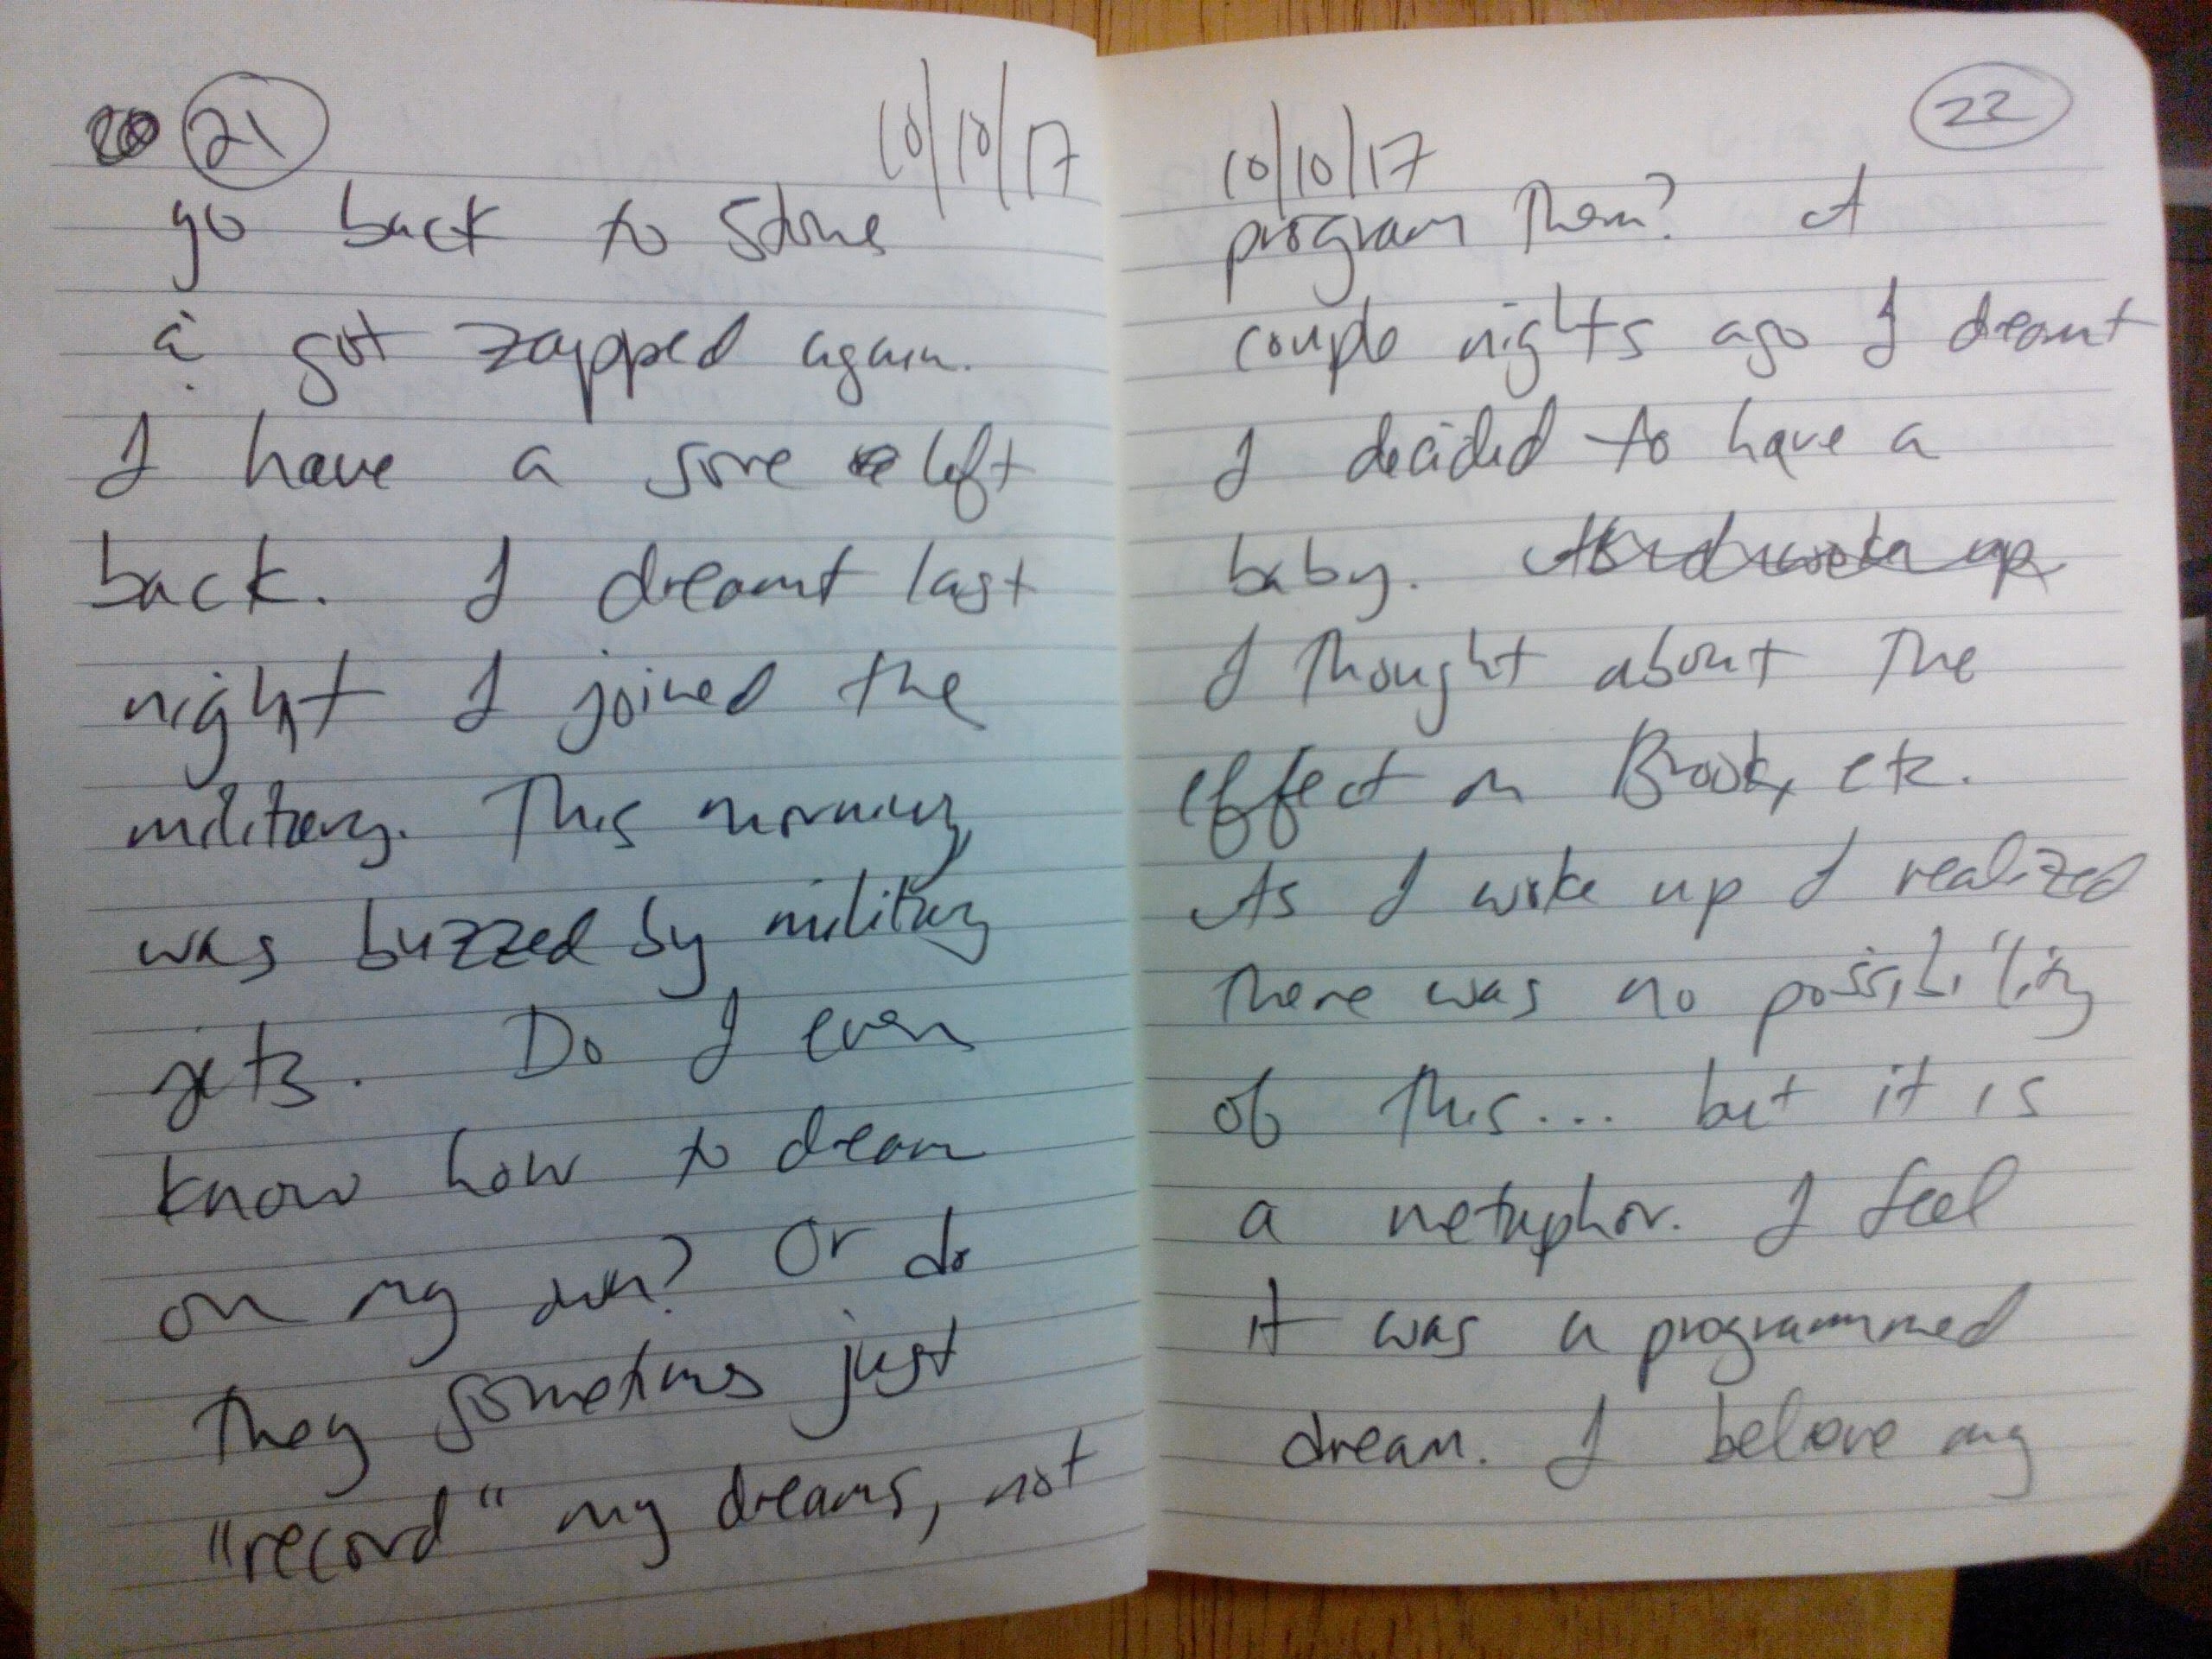 21
10/10/17
go back to
got zapped again.
I have a sore left
back. I dreamt last
night I joined the
military. This morning
was buzzed by military
jets. Do I even
know how to dream
on my own? Or do
they sometimes just
"record" my dreams, not
22
10/10/17
program them? A
couple nights ago I dreamt
I decided to have a
baby.
I thought about the
effect on Brook, etc.
As I woke up I realized
there was no possibility
of this... but it is
a metaphor. I feel
it was a programmed
dream. I believe my